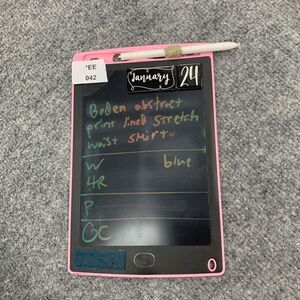 *EE
042
January 24
Boden abstract
print lined stretch
waist skirt
W blue
4R
P
GC